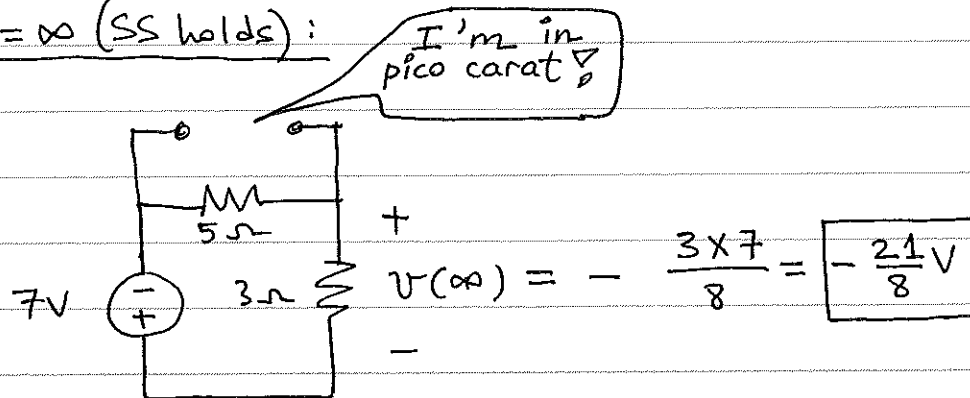 = ∞ (SS holds) :
I'm in
pico carat !
5Ω
+
7V
-
+
3Ω
v(∞) = - 3×7/8 = - 21/8 V
-